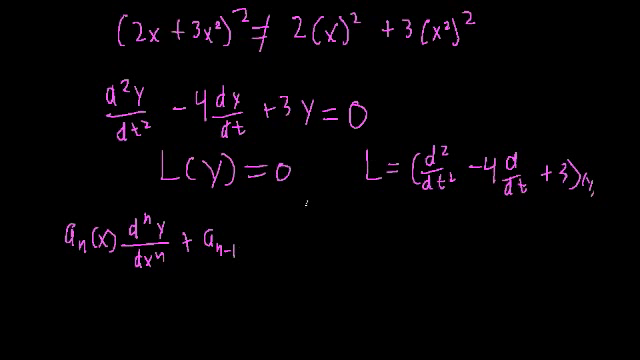 (2x + 3x²)² ≠ 2(x)² + 3(x²)²
d²y/dt² - 4 dy/dt + 3y = 0
L(y) = 0 L = (d²/dt² - 4 d/dt + 3)(y)
aₙ(x) dⁿy/dxⁿ + aₙ₋₁